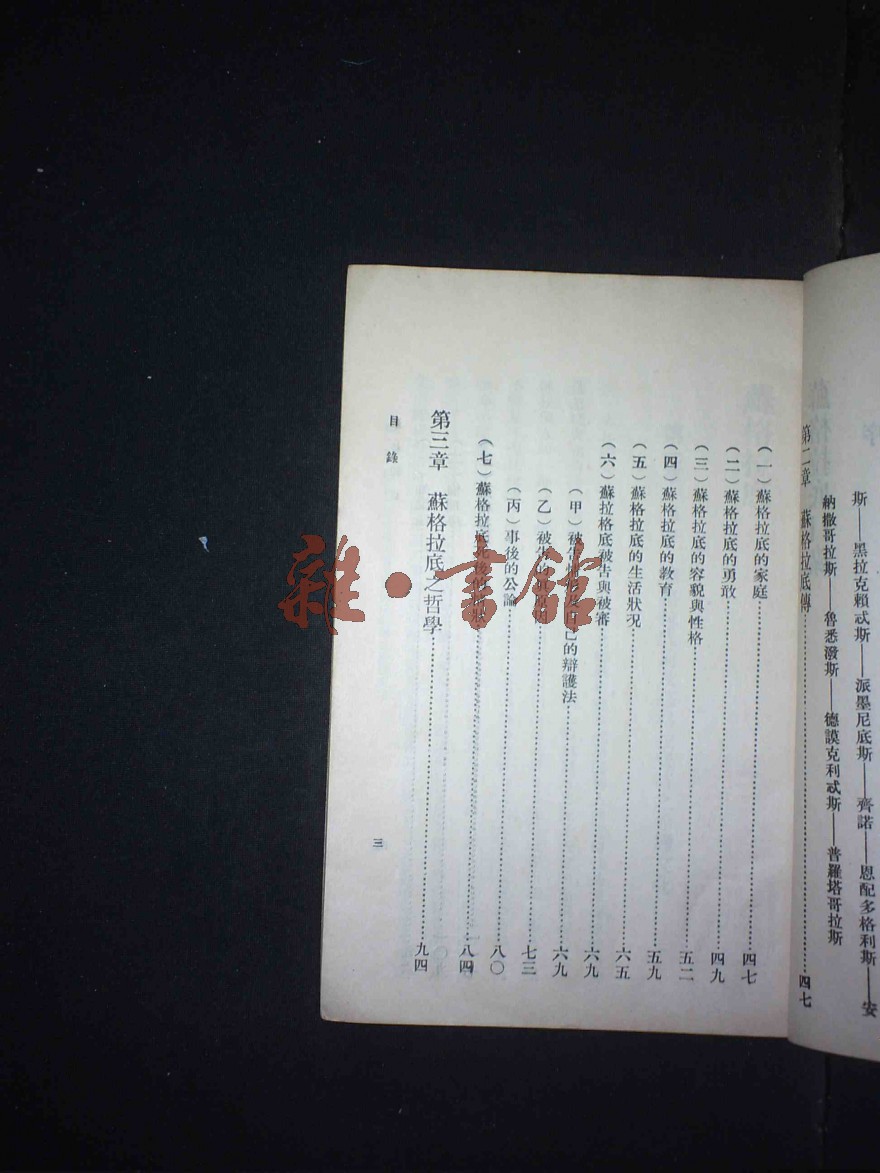 斯——黑拉克賴忒斯——派墨尼底斯——齊諾——恩配多格利斯——安
納撒哥拉斯——魯悉潑斯——德謨克利忒斯——普羅塔哥拉斯
第二章 蘇格拉底傳……四七
(一)蘇格拉底的家庭……四七
(二)蘇格拉底的勇敢……四九
(三)蘇格拉底的容貌與性格……五二
(四)蘇格拉底的教育……五九
(五)蘇格拉底的生活狀况……六五
(六)蘇拉格底被告與被審……六九
(甲)被告情自己的辯護法……六九
(乙)被告的……七三
(丙)事後的公論……八〇
(七)蘇格拉底死後的……八四
第三章 蘇格拉底之哲學……九四
目錄
三
雜·書館